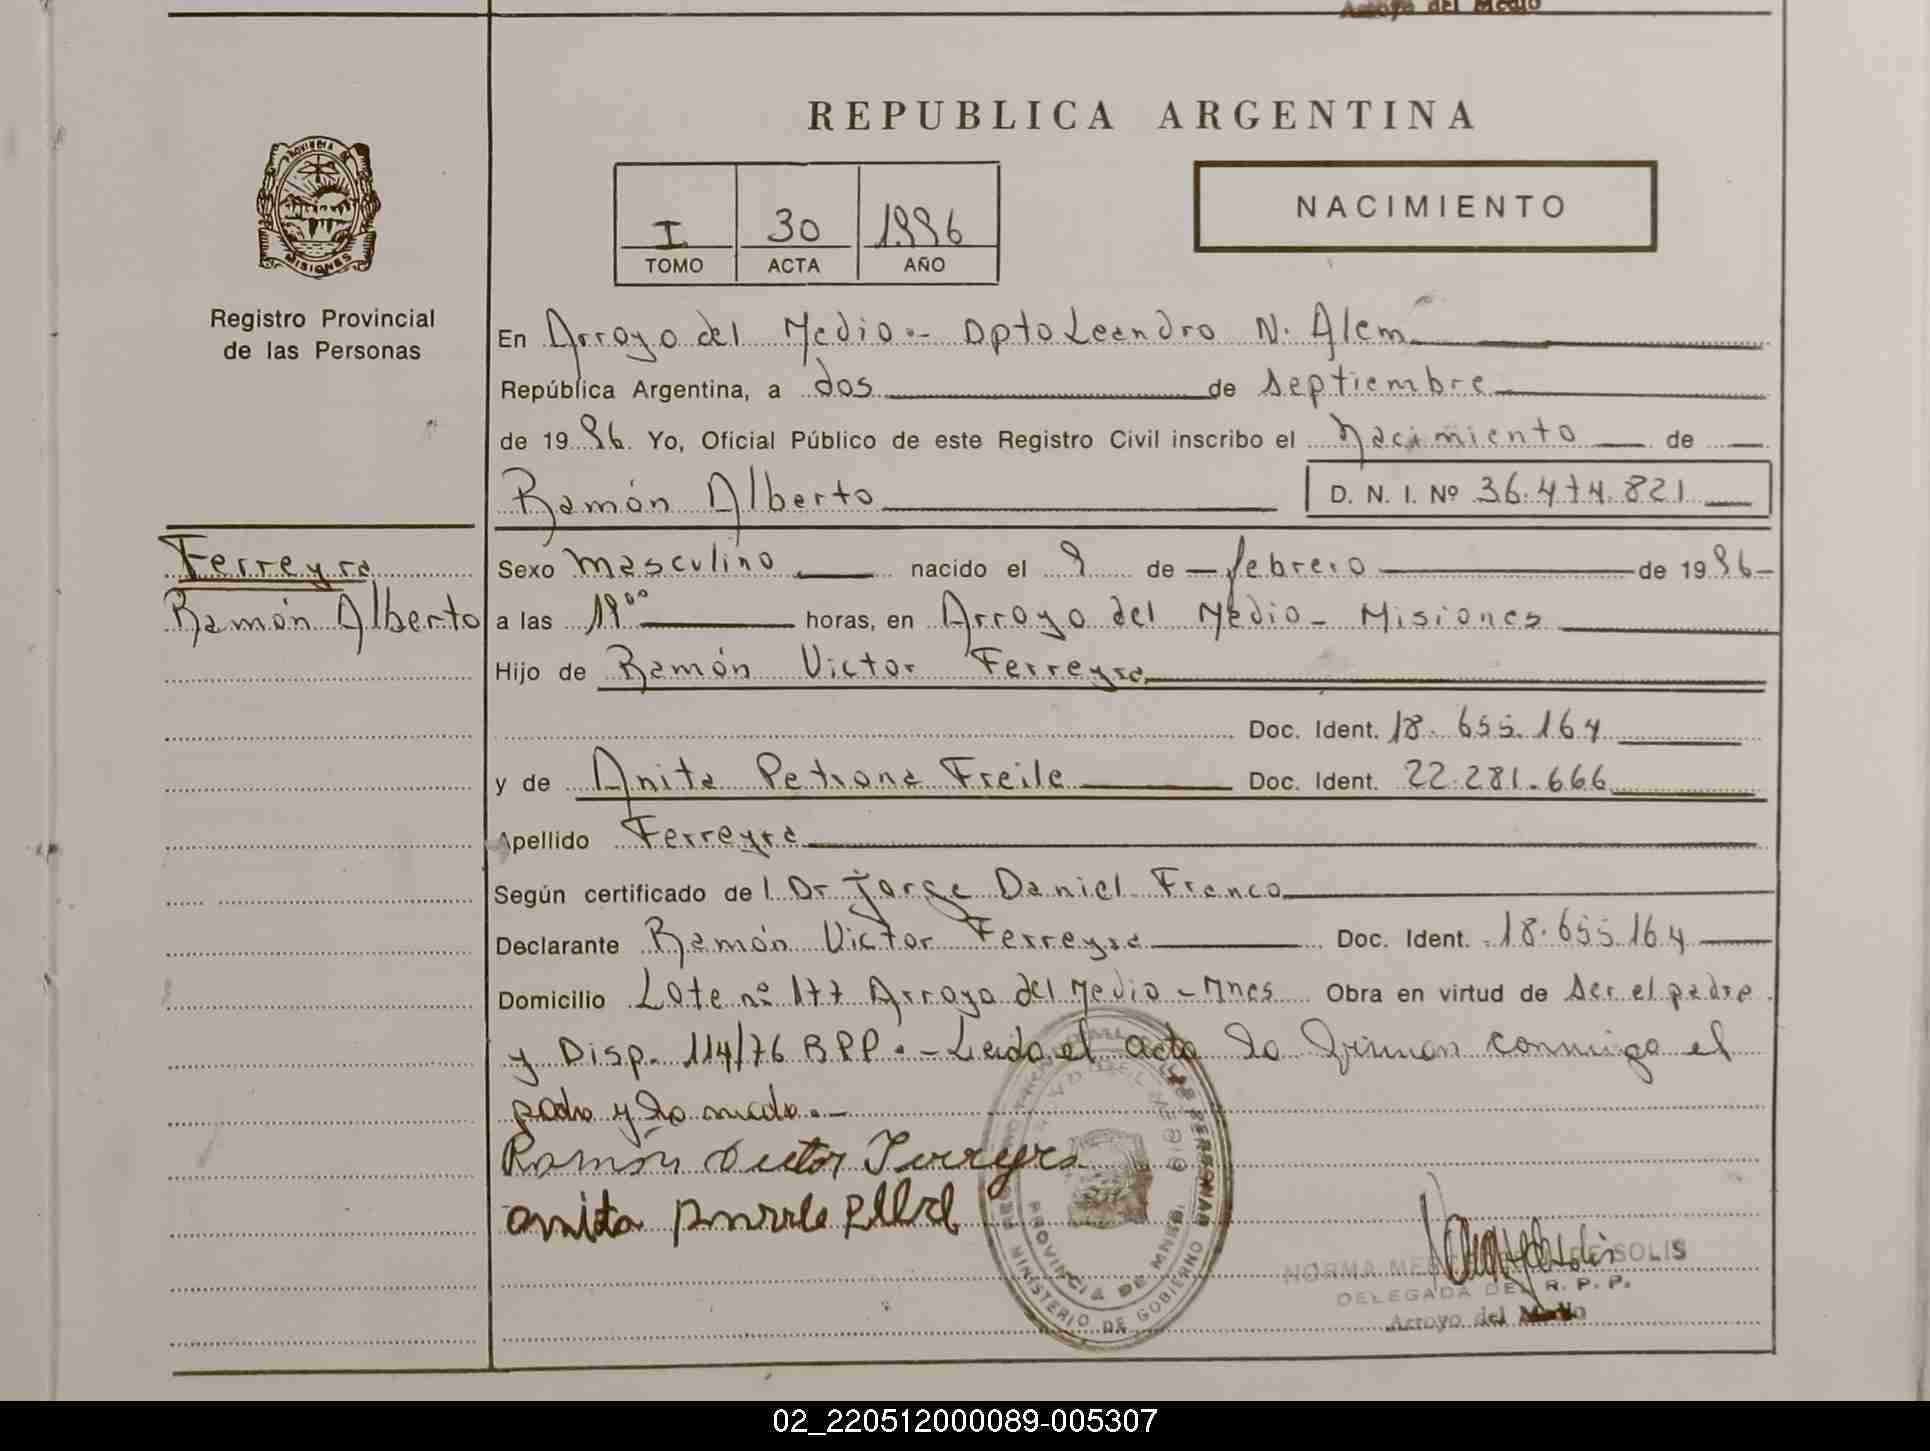 Arroyo del Medio
REPUBLICA ARGENTINA
PROVINCIA DE
MISIONES
I 30 1996
TOMO ACTA AÑO
NACIMIENTO
Registro Provincial
de las Personas
En Arroyo del Medio.- Dpto Leandro N. Alem
República Argentina, a dos de septiembre
de 1996. Yo, Oficial Público de este Registro Civil inscribo el Nacimiento de
Ramón Alberto D. N. I. Nº 36.474.821
Ferreyra
Ramón Alberto
Sexo Masculino nacido el 9 de febrero de 1996
a las 19⁰⁰ horas, en Arroyo del Medio - Misiones
Hijo de Ramón Victor Ferreyra
Doc. Ident. 18.655.164
y de Anita Petrona Freile Doc. Ident. 22.281.666
Apellido Ferreyra
Según certificado de l Dr Jorge Daniel Franco
Declarante Ramón Victor Ferreyra Doc. Ident. 18.655.164
Domicilio Lote nº 177 Arroyo del Medio - Mnes Obra en virtud de ser el padre
y Disp. 114/76 RPP.- Leida el acta la firman conmigo el
padre y la madre.-
Ramón Victor Ferreyra
anita
PROVINCIA DE MNES.
MINISTERIO DE GOBIERNO
NORMA DE SOLIS
DELEGADA DEL R. P. P.
Arroyo del Medio
02_220512000089-005307